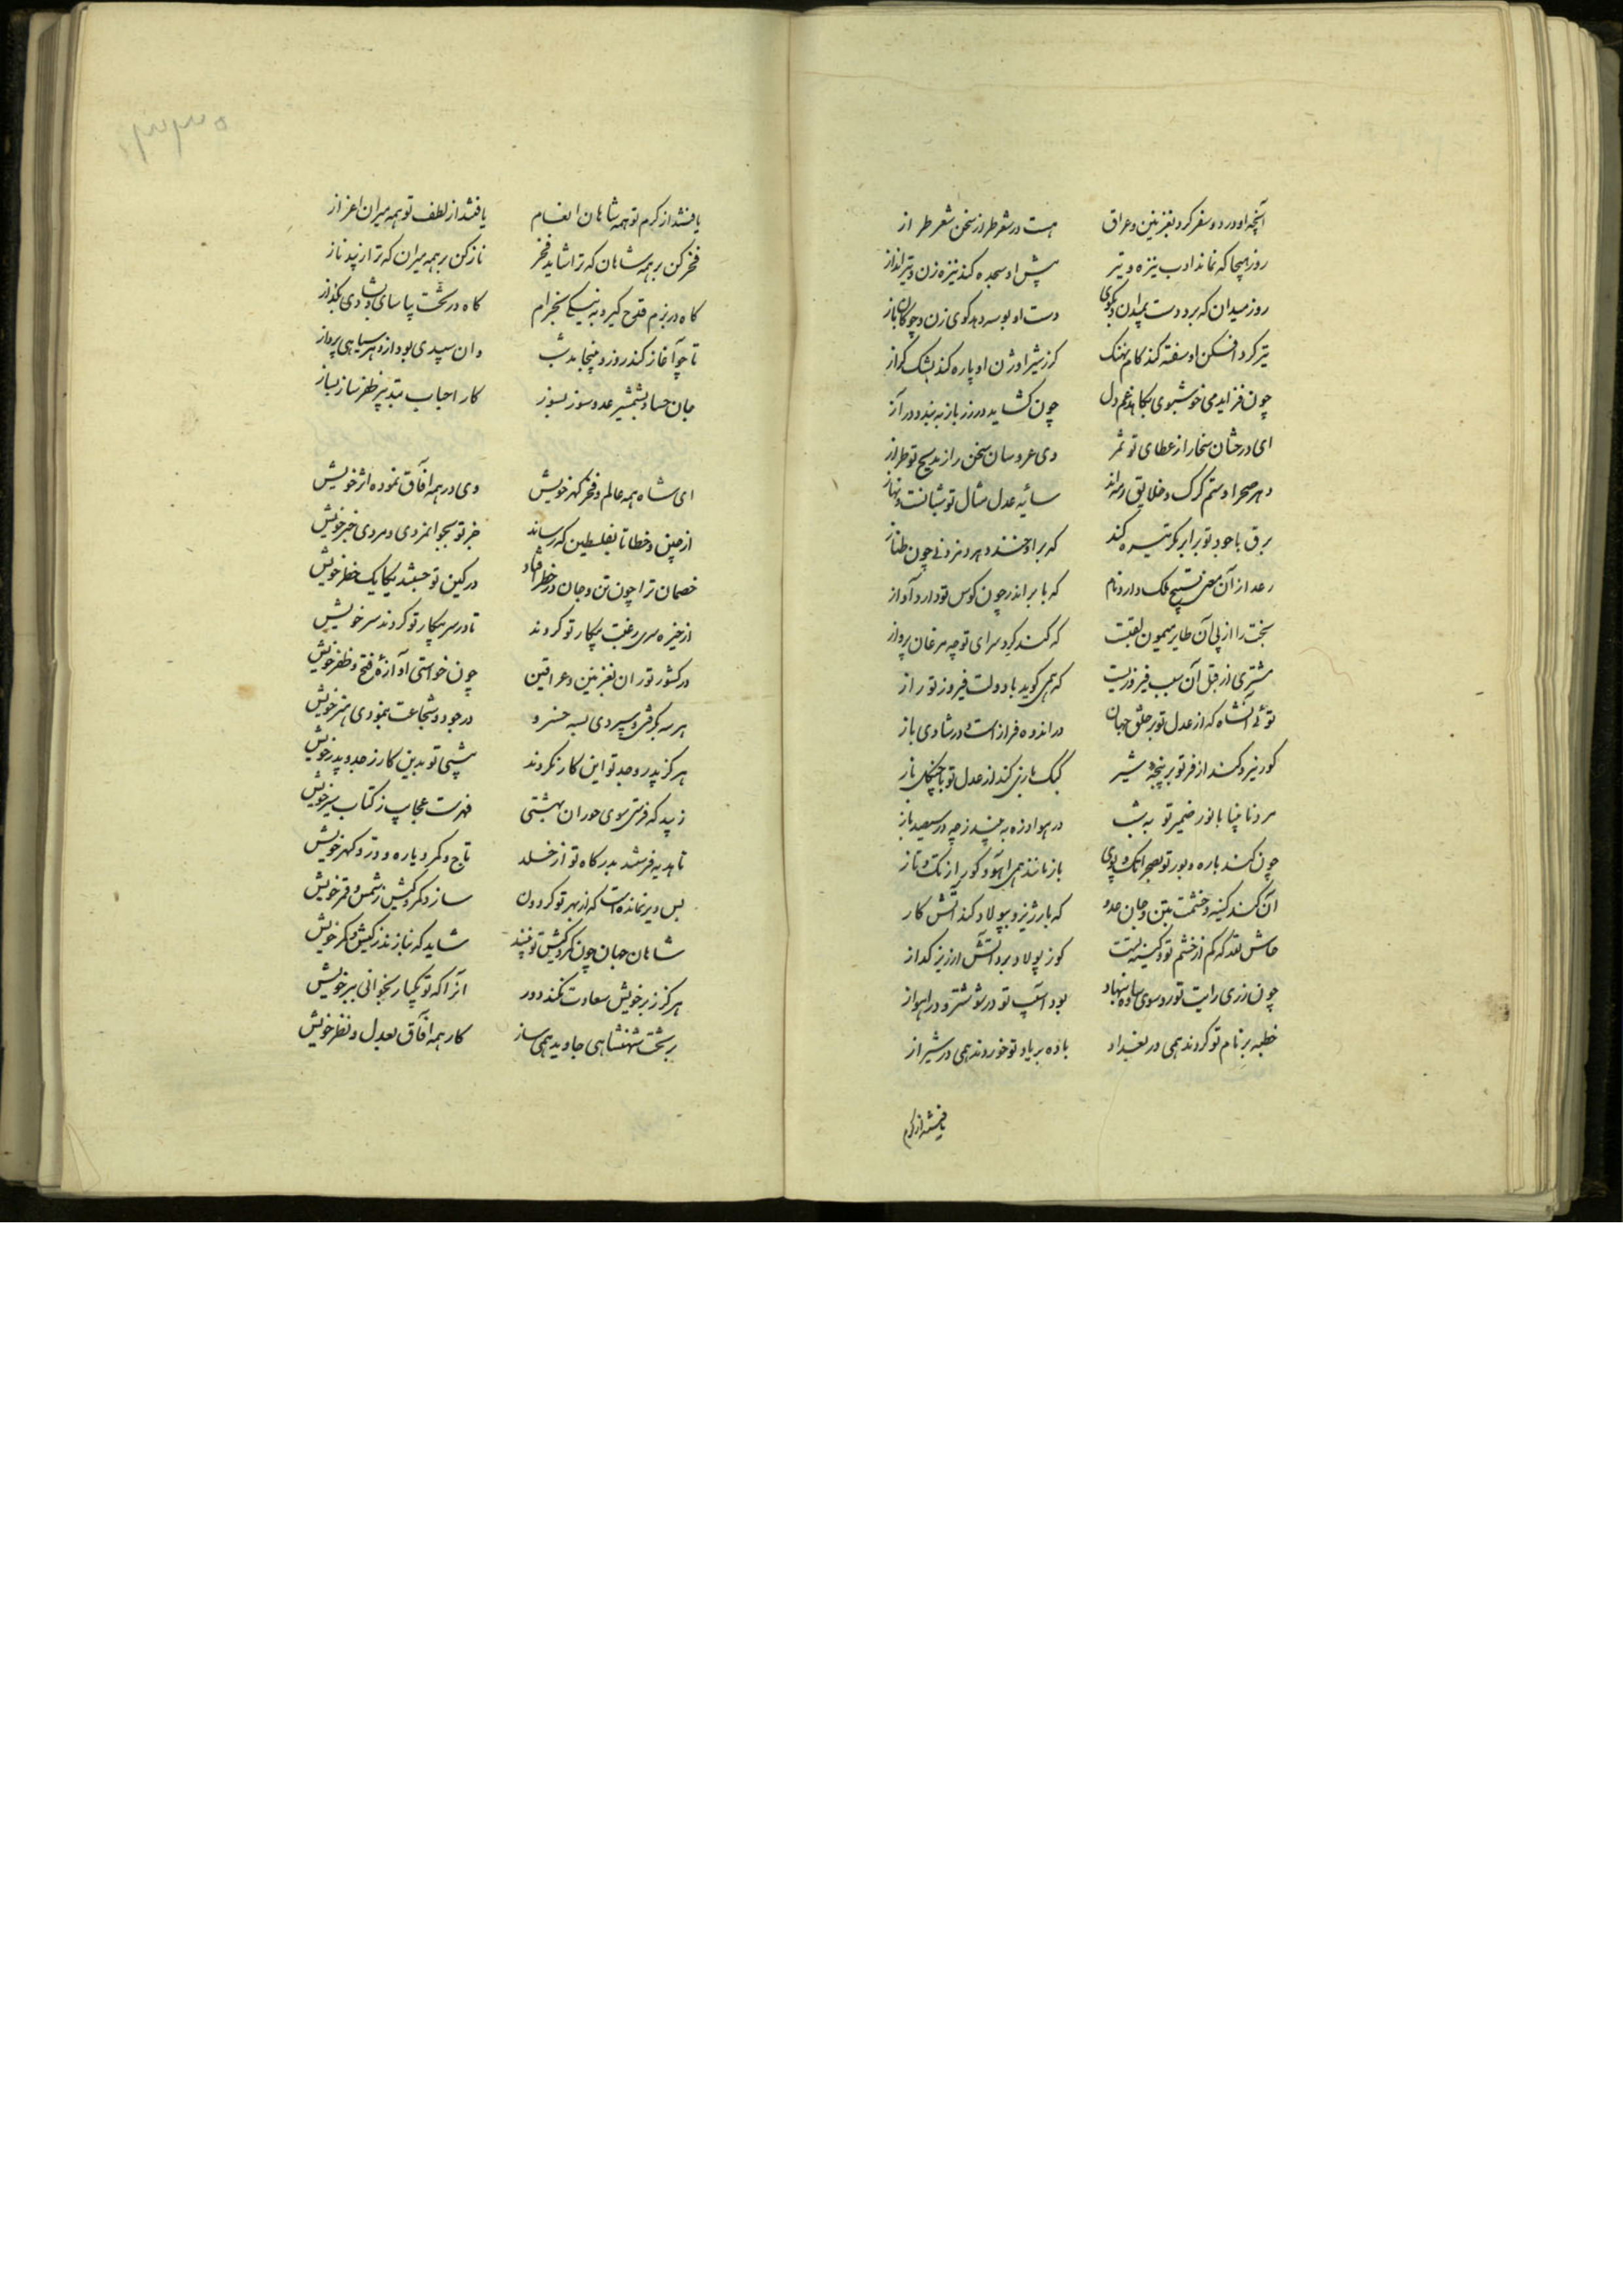 آنچه او در دو سفر کرد بغزنین و عراق هست در شعر طراز سخن شعر طراز
روز هیجا که نماند ادب نیزه و تیر پیش او سجده کند نیزه زن و تیرانداز
روز میدان که برد دست بمیدان و بگوی دست او بوسه دهد گوی زن و چوگان باز
تیر کرد افکن او سفته کند کام نهنگ گرز شیر اوژن او پاره کند یشک گراز
چون فزاید می خوشبوی بکاهد غم دل چون گشاید در رز باز ببندد در آز
ای درختان سخا را ز عطای تو ثمر وی عروسان سخن را ز مدیح تو طراز
دهر صحرا و ستم گرگ و خلایق رمه‌اند سایه عدل مثال تو شبانست و نهاز
برق با جود تو برابر تیره کند که بر او خندد هر دم زدنی چون طناز
رعد از آن معنی تسبیح ملک دارد نام که بابر اندر چون کوس تو دارد آواز
بخت را از پی آن طایر میمون لقبست که کند گرد سرای تو چو مرغان پرواز
مشتری از قبل آن سبب فیروزیست که همی گوید با دولت فیروز تو راز
توئی آنشاه که از عدل تو بر خلق جهان در اندوه فراز است و در شادی باز
گور نیرو کند از فر تو بر پنجه شیر کبک بازی کند از عدل تو با چنگل باز
مرد نابینا با نور ضمیر تو به شب در هوا ذره به بیند ز چه در سیصد باز
چون کند باره و یوز تو بصحرا تک و پوی باز مانند همی آهو و گور از تک و تاز
آن کند کینه و خشمت بتن و جان عدو که بارزیز و بپولاد کند آتش کار
حاش لله که کم از خشم تو و کینه تست کوز پولاد برد آتش ارزیز گداز
چون زری رایت تو رو سوی ساوه نهاد بود آسیب تو در شوشتر و در اهواز
خطبه بر نام تو کردند همی در بغداد باده بر یاد تو خوردند همی در شیراز
یافتند از کرم
یافتند از کرم تو همه شاهان انعام یافتند از لطف تو همه میران اعزاز
فخر کن بر همه شاهان که ترا شاید فخر ناز کن بر همه میران که ترا زیبد ناز
گاه در بزم قدح گیر و به نیکی بخرام گاه در تخت بیاسای و بشادی بگذار
تا چو آغاز کند روز و پنجا بد شب وان سپیدی بود از دهر سیاهی پرداز
جان حساد بشمشیر عدو سوز بسوز کار احباب بتدبیر ظفر ساز بساز
ای شاه همه عالم و فخر گهر خویش وی در همه آفاق نموده اثر خویش
از چین و خطا تا بفلسطین که رساند جز تو بجوانمردی و مردی خبر خویش
خصمان ترا چون تن و جان در خطر افتاد در کین تو جستند یکایک خطر خویش
از خیره سری رغبت پیکار تو کردند تا در سر پیکار تو کردند سر خویش
در کشور توران بغزنین و عراقین چون خواستی آوازه فتح و ظفر خویش
هر سه بگرفتی و سپردی بسه خسرو در جود و شجاعت بنمودی هنر خویش
هرگز پدر و جد تو این کار نکردند پیشی تو بدین کار ز جد و پدر خویش
زیبد که فرستی سوی حوران بهشتی فهرست عجایب ز کتاب سیر خویش
تا هدیه فرستند بدرگاه تو از خلد تاج و کمر و یاره و در و گهر خویش
بس دیر نمانده است که از بهر تو گردون سازد کمر و کیش ز شمس و قمر خویش
شاهان جهان چون کمر و کیش تو بینند شاید که ننازند ز کیش و کمر خویش
هرگز ز بر خویش سعادت نکند دور آنرا که تو یکبار بخوانی ببر خویش
بر تخت شهنشاهی جاوید همی ساز کار همه آفاق بعدل و نظر خویش